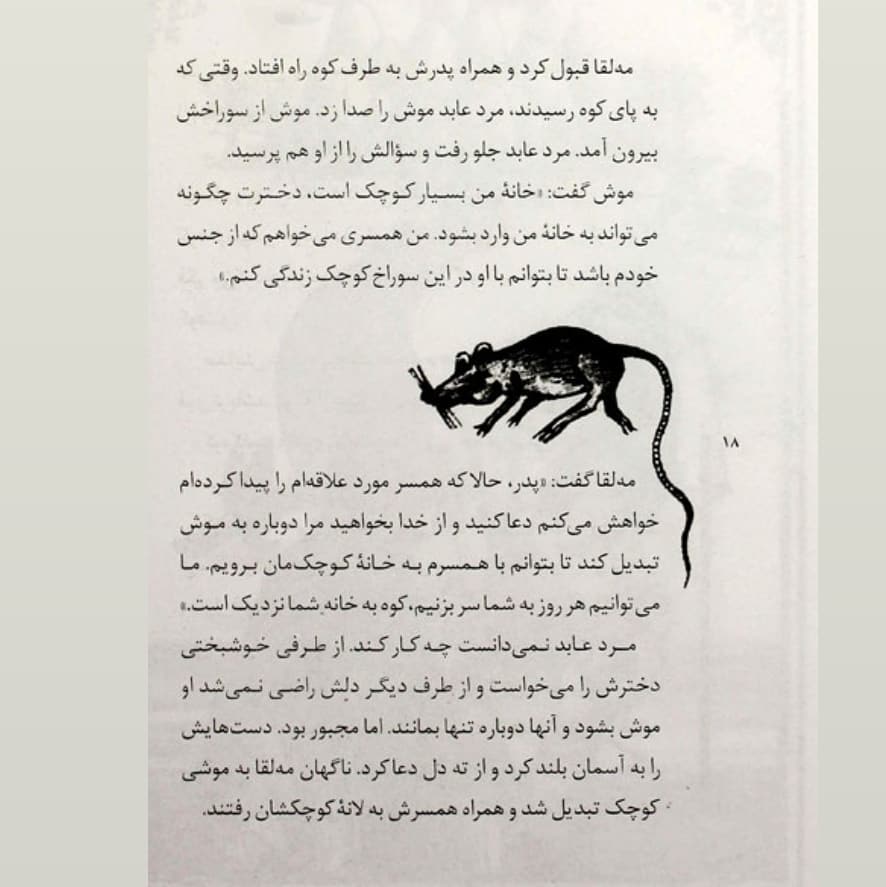 مه‌لقا قبول کرد و همراه پدرش به طرف کوه راه افتاد. وقتی که
به پای کوه رسیدند، مرد عابد موش را صدا زد. موش از سوراخش
بیرون آمد. مرد عابد جلو رفت و سؤالش را از او هم پرسید.
موش گفت: «خانهٔ من بسیار کوچک است، دخترت چگونه
می‌تواند به خانهٔ من وارد بشود. من همسری می‌خواهم که از جنس
خودم باشد تا بتوانم با او در این سوراخ کوچک زندگی کنم.»
۱۸
مه‌لقا گفت: «پدر، حالا که همسر مورد علاقه‌ام را پیدا کرده‌ام
خواهش می‌کنم دعا کنید و از خدا بخواهید مرا دوباره به موش
تبدیل کند تا بتوانم با همسرم به خانهٔ کوچک‌مان برویم. ما
می‌توانیم هر روز به شما سر بزنیم، کوه به خانه شما نزدیک است.»
مرد عابد نمی‌دانست چه کار کند. از طرفی خوشبختی
دخترش را می‌خواست و از طرف دیگر دلش راضی نمی‌شد او
موش بشود و آنها دوباره تنها بمانند. اما مجبور بود. دست‌هایش
را به آسمان بلند کرد و از ته دل دعا کرد. ناگهان مه‌لقا به موشی
کوچک تبدیل شد و همراه همسرش به لانهٔ کوچکشان رفتند.